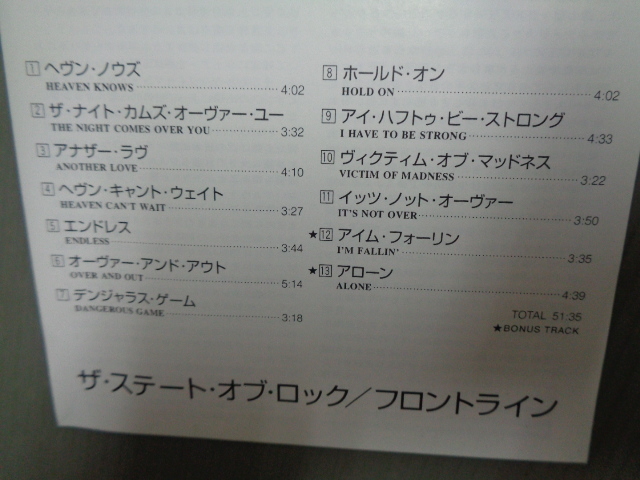 1 ヘヴン・ノウズ
HEAVEN KNOWS 4:02
2 ザ・ナイト・カムズ・オーヴァー・ユー
THE NIGHT COMES OVER YOU 3:32
3 アナザー・ラヴ
ANOTHER LOVE 4:10
4 ヘヴン・キャント・ウェイト
HEAVEN CAN'T WAIT 3:27
5 エンドレス
ENDLESS 3:44
6 オーヴァー・アンド・アウト
OVER AND OUT 5:14
7 デンジャラス・ゲーム
DANGEROUS GAME 3:18
8 ホールド・オン
HOLD ON 4:02
9 アイ・ハフトゥ・ビー・ストロング
I HAVE TO BE STRONG 4:33
10 ヴィクティム・オブ・マッドネス
VICTIM OF MADNESS 3:22
11 イッツ・ノット・オーヴァー
IT'S NOT OVER 3:50
★12 アイム・フォーリン
I'M FALLIN' 3:35
★13 アローン
ALONE 4:39
TOTAL 51:35
★BONUS TRACK
ザ・ステート・オブ・ロック／フロントライン